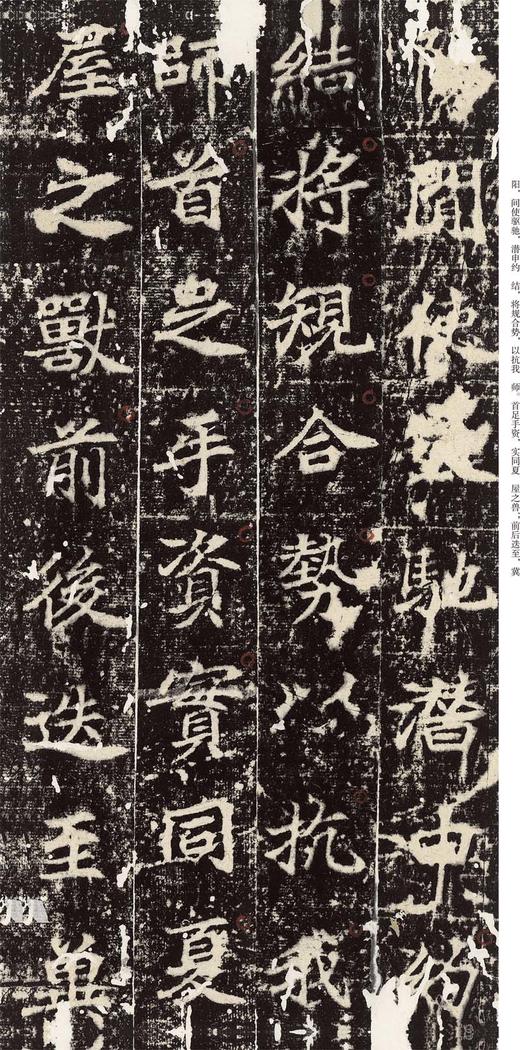 間使馳潛申約
結將規合勢以抗我
師首足手資實同夏
屋之獸前後迭至冀
阳，间使驱驰，潜申约 结，将规合势，以抗我 师。首足手资，实同夏 屋之兽；前后迭至，冀